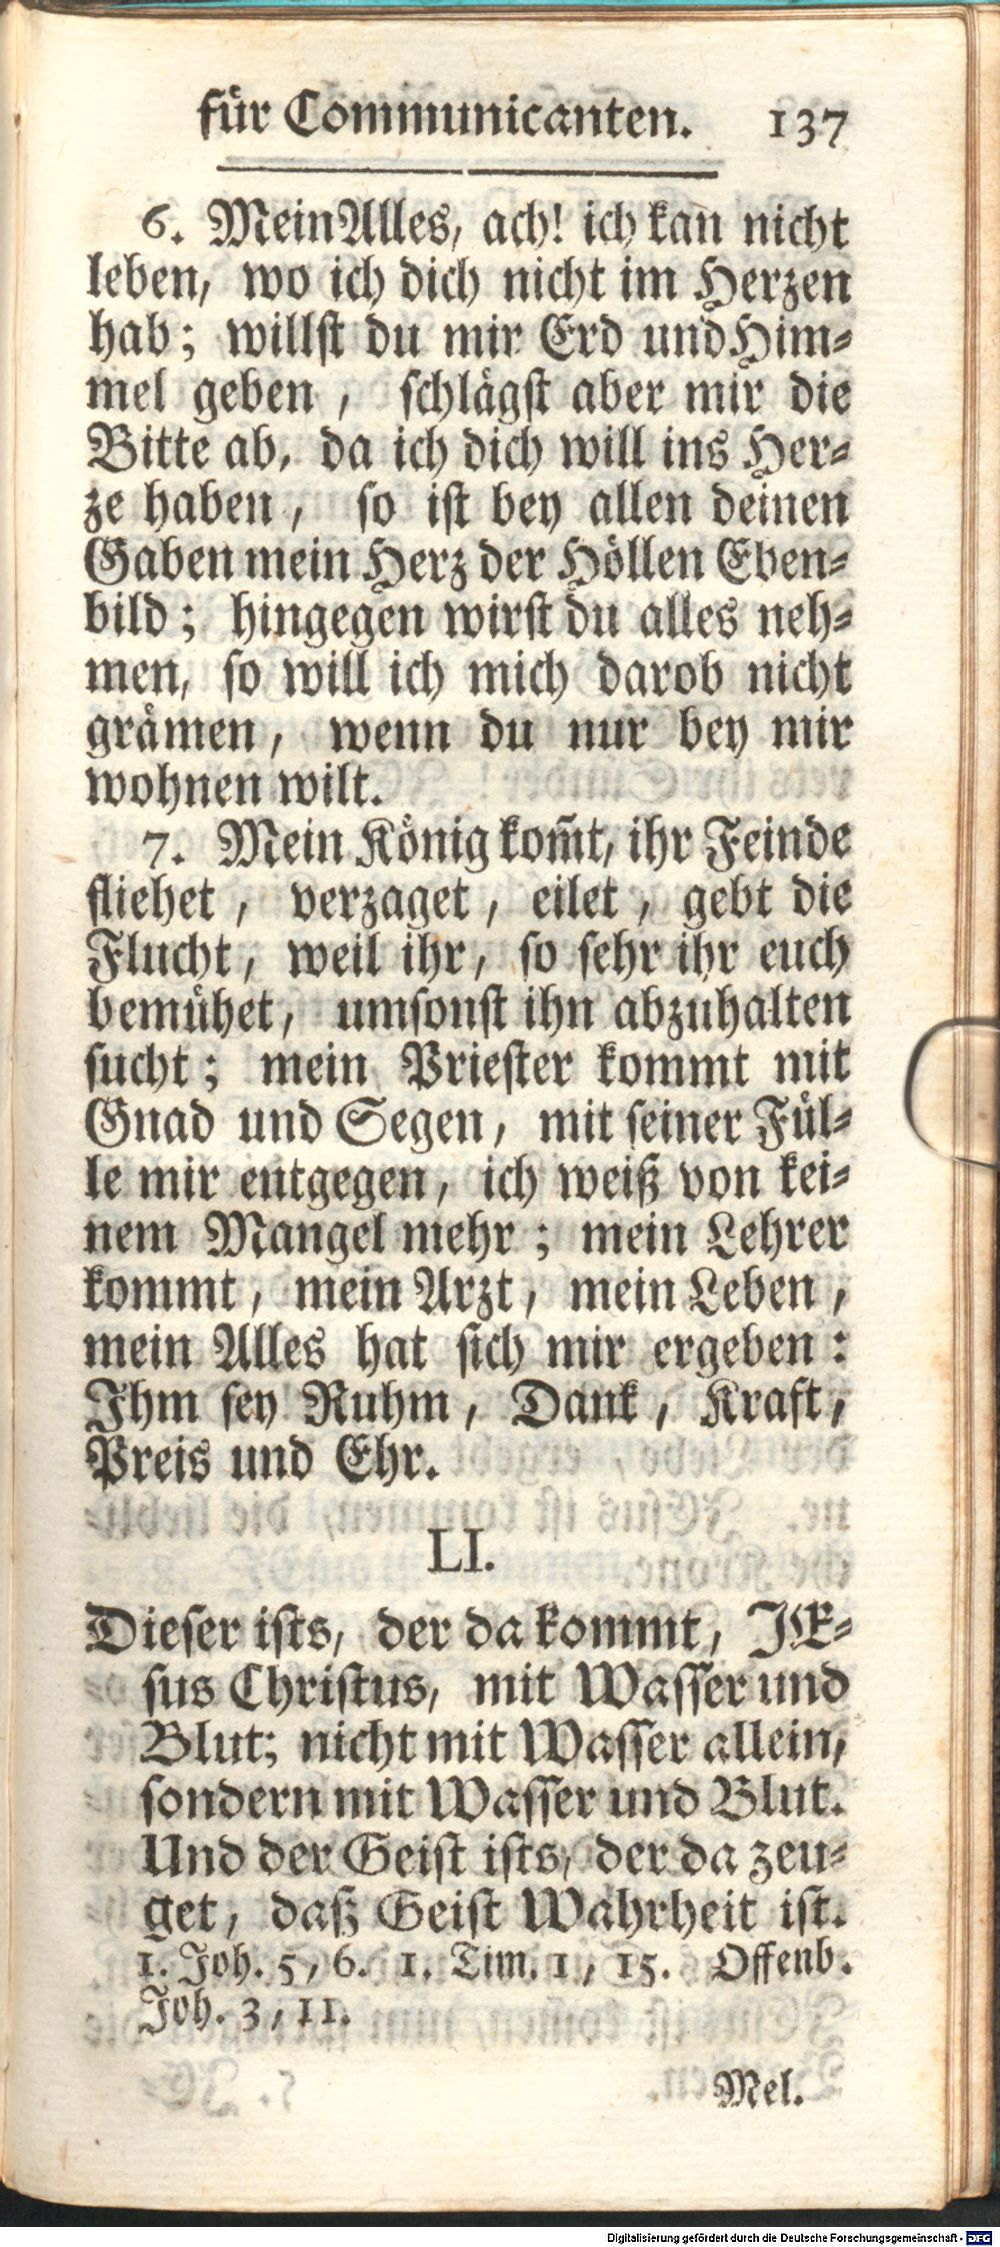 für Communicanten. 137
6. Mein Alles, ach! ich kan nicht
leben, wo ich dich nicht im Herzen
hab; willſt du mir Erd und Him-
mel geben, ſchlägſt aber mir die
Bitte ab, da ich dich will ins Her-
ze haben, ſo iſt bey allen deinen
Gaben mein Herz der Höllen Eben-
bild; hingegen wirſt du alles neh-
men, ſo will ich mich darob nicht
grämen, wenn du nur bey mir
wohnen wilt.
7. Mein König kom̃t, ihr Feinde
fliehet, verzaget, eilet, gebt die
Flucht, weil ihr, ſo ſehr ihr euch
bemühet, umſonſt ihn abzuhalten
ſucht; mein Prieſter kommt mit
Gnad und Segen, mit ſeiner Fül-
le mir entgegen, ich weiß von kei-
nem Mangel mehr; mein Lehrer
kommt, mein Arzt, mein Leben,
mein Alles hat ſich mir ergeben:
Ihm ſey Ruhm, Dank, Kraft,
Preis und Ehr.
LI.
Dieſer iſts, der da kommt, JE-
ſus Chriſtus, mit Waſſer und
Blut; nicht mit Waſſer allein,
ſondern mit Waſſer und Blut.
Und der Geiſt iſts, der da zeu-
get, daß Geiſt Wahrheit iſt.
1. Joh. 5, 6. 1. Tim. 1, 15. Offenb.
Joh. 3, 11.
Mel.
Digitalisierung gefördert durch die Deutsche Forschungsgemeinschaft - DFG